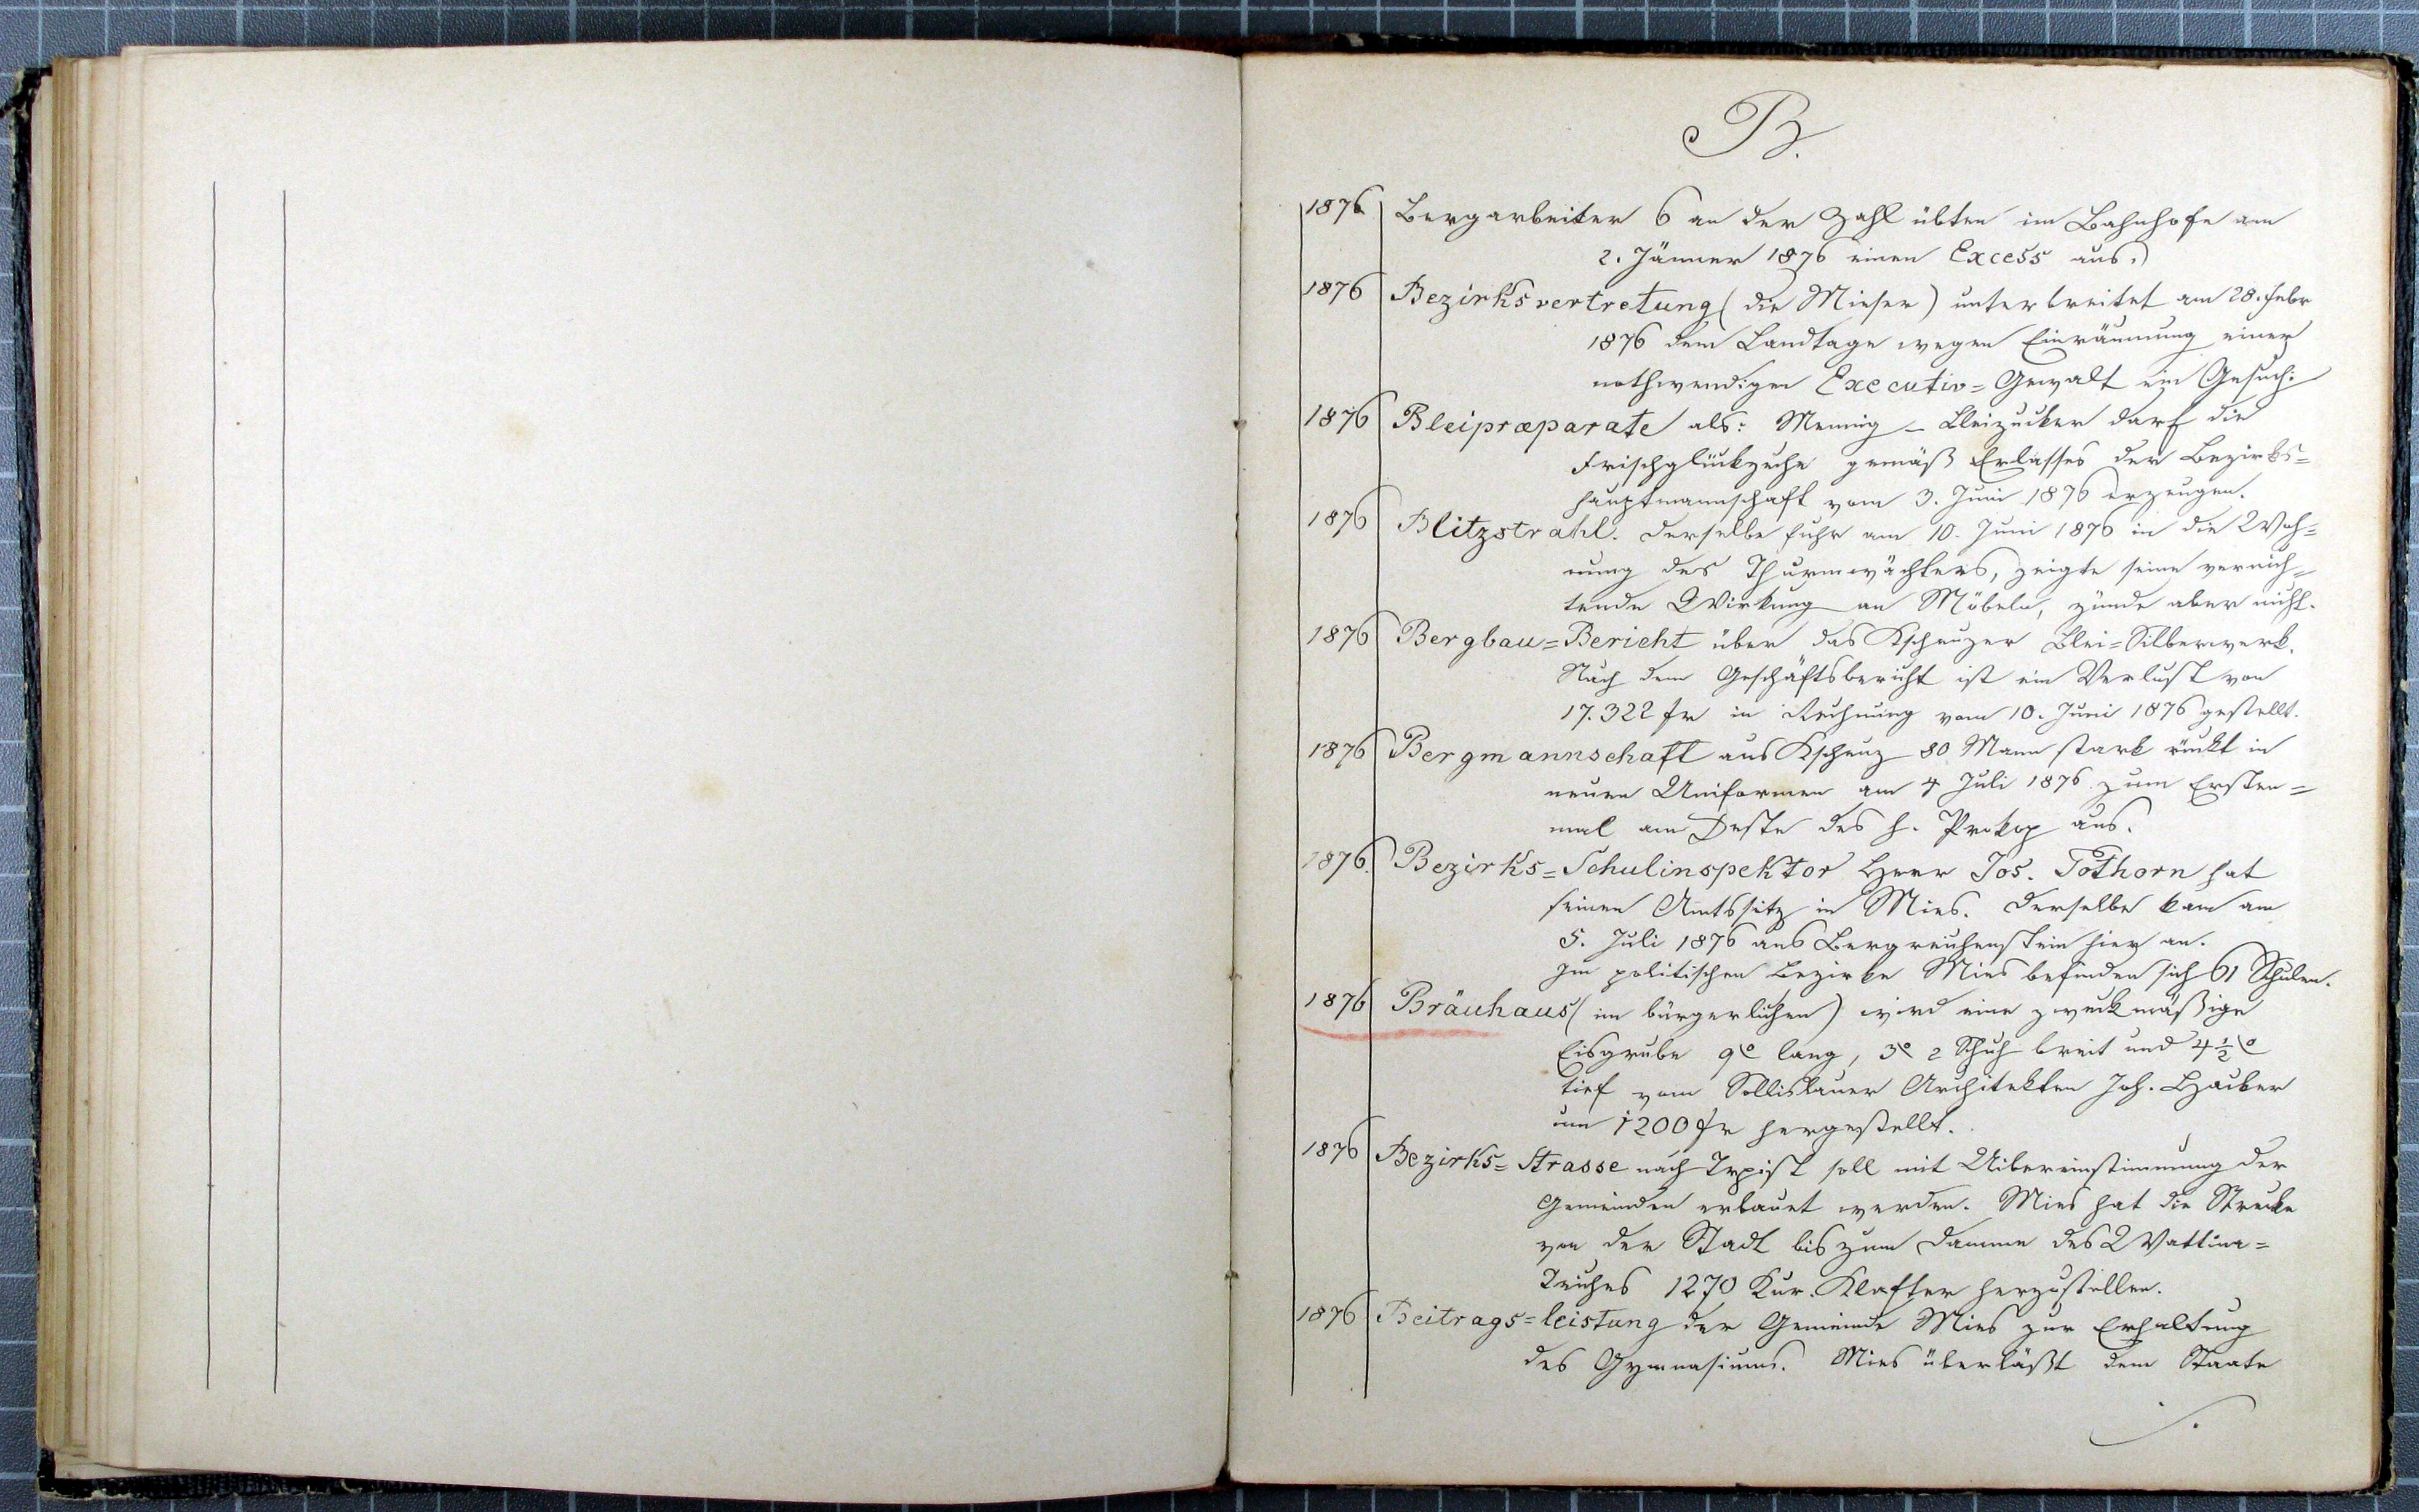 B.
1876 Bergarbeiter 6 an der Zahl übten im Bahnhofe am
2. Jänner 1876 einen Excess aus.
1876 Bezirksvertretung (die Mieser) unterbreitet am 28. Febr
1876 dem Landtage wegen Einräumung einer
nothwendigen Executiv=Gewalt ein Gesuch.
1876 Bleipræparate als: Mennig – Bleizucker darf die
Frischglückzeche gemäß Erlasses der Bezirks=
hauptmannschaft vom 3. Juni 1876 erzeugen.
1876 Blitzstrahl. Derselbe fuhr am 10. Juni 1876 in die Woh=
nung des Thurmwächters, zeigte seine vernich=
tende Wirkung an Möbeln, zünde aber nicht.
1876 Bergbau=Bericht über das Kscheuzer Blei=Silberwerk.
Nach dem Geschäftsbericht ist ein Verlust von
17.322 fr in Rechnung vom 10. Juni 1876 gestellt.
1876 Bergmannschaft aus Kscheuz 80 Mann stark rückt in
neuen Uniformen am 4 Juli 1876 zum Ersten=
mal am Feste des h. Prokop aus.
1876. Bezirks=Schulinspektor Herr Jos. Tothorn hat
seinen Amtssitz in Mies. Derselbe kam am
5. Juli 1876 aus Bergreichenstein hier an.
Im politischen Bezirke Mies befinden sich 61 Schulen.
1876 Bräuhaus (im bürgerlichen) wird eine zweckmäßige
Eisgrube 9° lang, 3° 2 Schuh breit und 4½°
tief vom Sollislauer Architekten Joh. Hacker
um 1200 fr hergestellt.
1876 Bezirks=Strasse nach Trpist soll mit Uibereinstimmung der
Gemeinden erbauet werden. Mies hat die Strecke
von der Stadt bis zum Damme des Wattina=
Teiches 1270 Kur. Klafter herzustellen.
1876 Beitrags=leistung der Gemeinde Mies zur Erhaltung
des Gymnasiums. Mies überläßt dem Staate